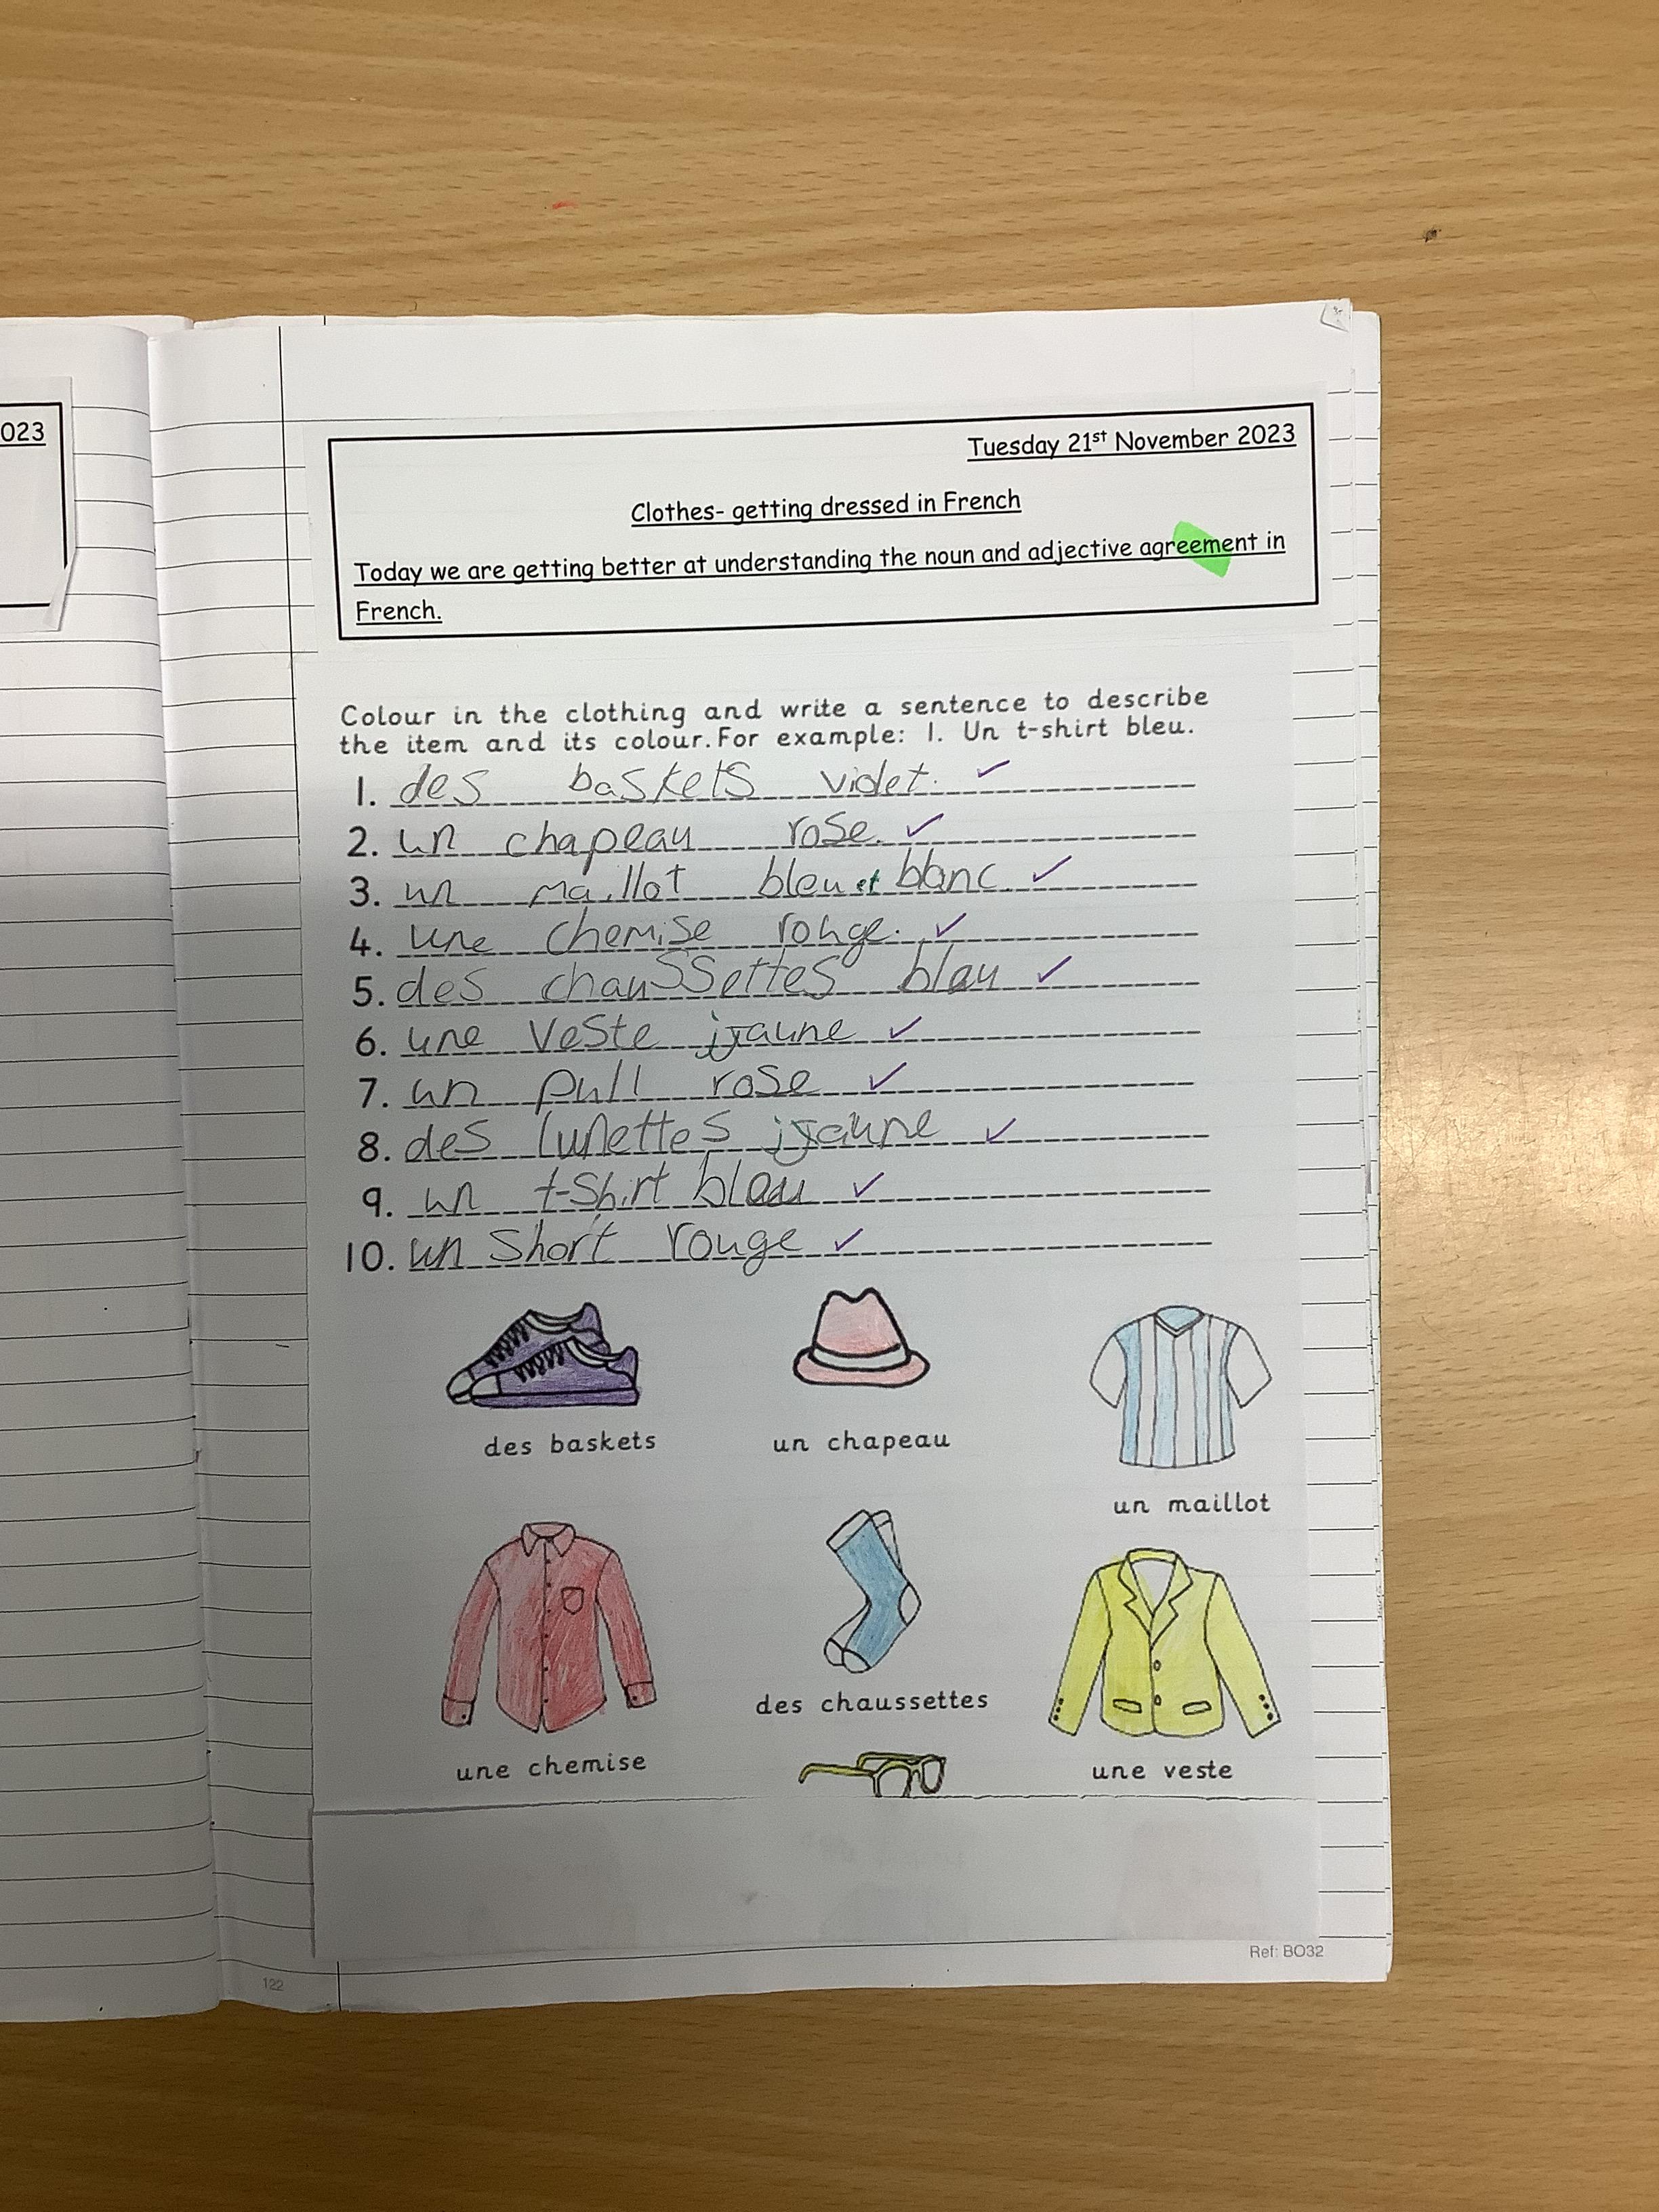 023
Tuesday 21st November 2023
Clothes- getting dressed in French
Today we are getting better at understanding the noun and adjective agreement in
French.
Colour in the clothing and write a sentence to describe
the item and its colour. For example: 1. Un t-shirt bleu.
1. des baskets violet.
2. un chapeau rose.
3. un maillot bleu et blanc
4. une chemise rouge.
5. des chaussettes bleu
6. une veste jaune
7. un pull rose
8. des lunettes jaune
9. un t-shirt bleu
10. un short rouge
des baskets
un chapeau
un maillot
une chemise
des chaussettes
une veste
Ref: BO32
122